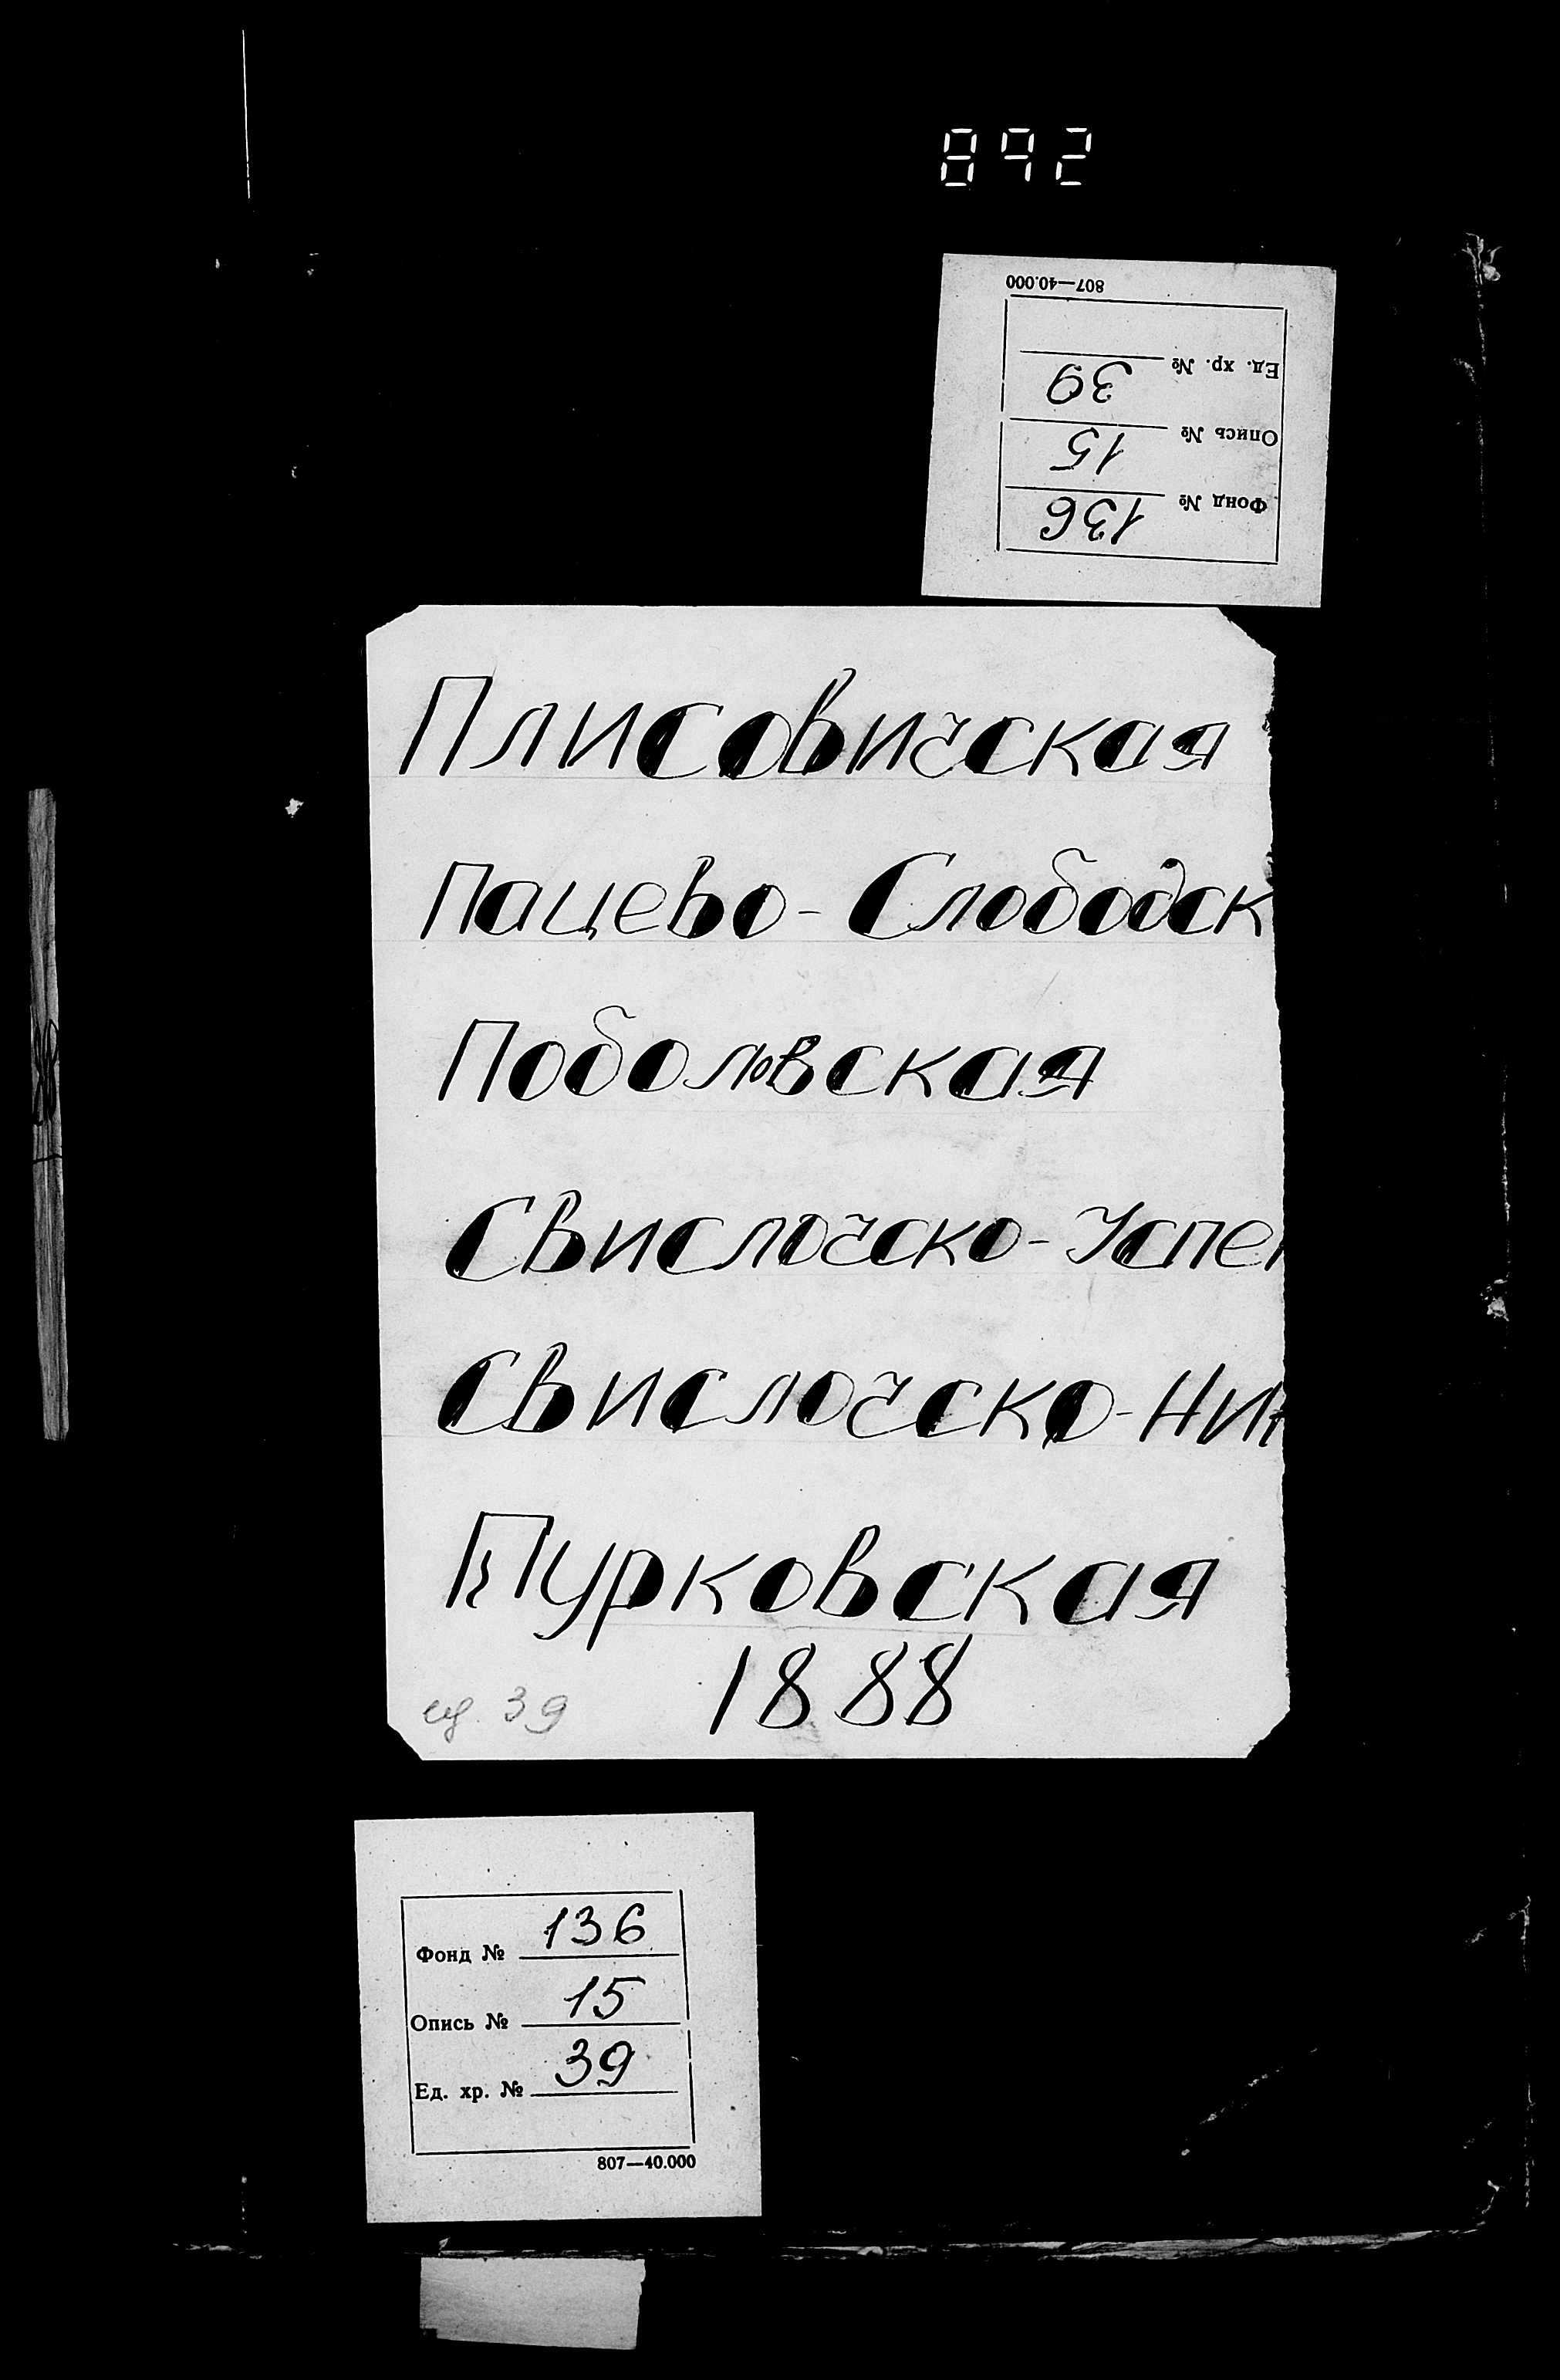 892
807—40.000
Ед. хр. № 39
Опись № 15
Фонд № 136
Плисовичская
Пацево-Слободск
Поболовская
Свислочско-Успен
Свислочско-Ник
Турковская
1888
ед. 39
Фонд № 136
Опись № 15
Ед. хр. № 39
807—40.000